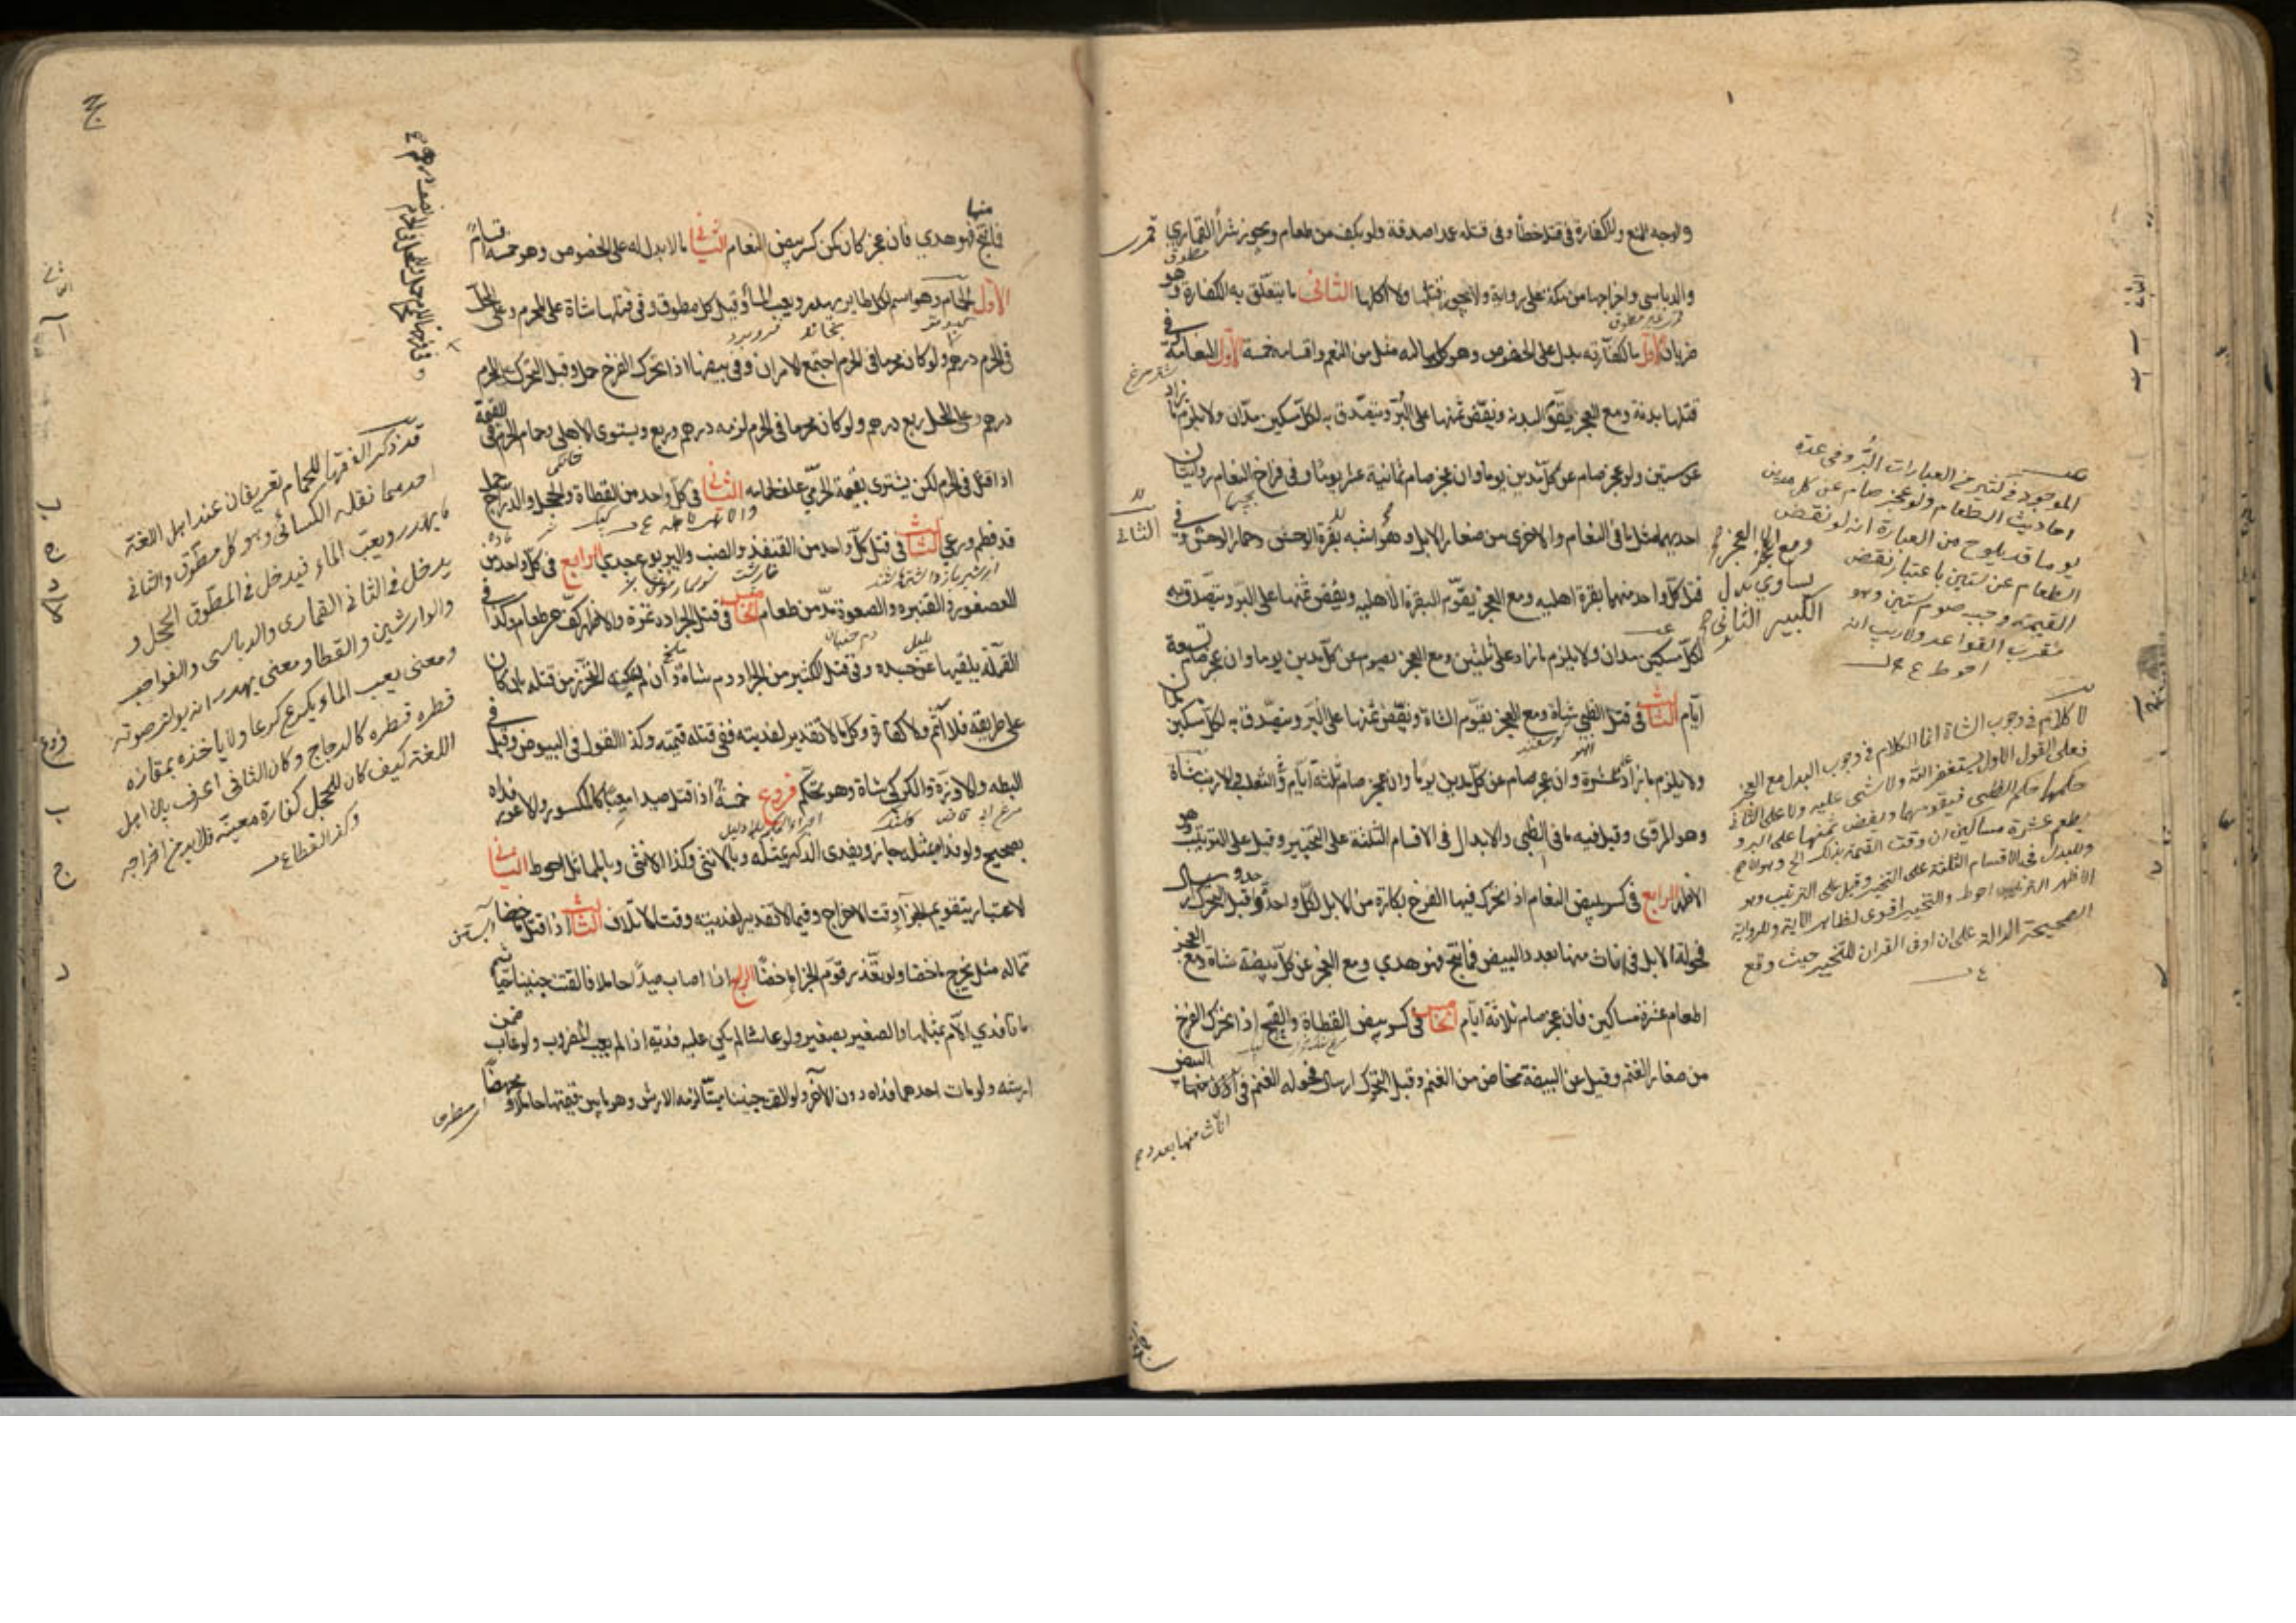 والوجه المنع ولا كفارة في قتله خطأ وفي قتله عمدا صدقة ولو بكف من طعام ويجوز شراء القماري
والدباسي واخراجها من مكة على رواية ولا يجوز قتلها ولا اكلها الثاني ما يتعلق به الكفارة وهو
ضربان الاول ما لكفارته بدل على الخصوص وهو كل ما له مثل من النعم واقسامه خمسة الاول النعامة في
قتلها بدنة ومع العجز يقوم البدنة ويفض ثمنها على البر ويتصدق به لكل مسكين مدان ولا يلزم ما زاد
عن ستين ولو عجز صام عن كل مدين يوما وان عجز صام ثمانية عشر يوما وفي فراخ النعام روايتان
احديهما مثل ما في النعام والاخرى من صغار الابل وهو اشبه بقرة الوحش وحمار الوحش وفي
قتل كل واحد منهما بقرة اهلية ومع العجز يقوم البقرة الاهلية ويفض ثمنها على البر ويتصدق به
لكل مسكين مدان ولا يلزم ما زاد على ثلثين ومع العجز يصوم عن كل مدين يوما وان عجز صام تسعة
ايام الثالث في قتل الظبي شاة ومع العجز يقوم الشاة ويفض ثمنها على البر ويتصدق به لكل مسكين مدان
ولا يلزم ما زاد عن عشرة وان عجز صام عن كل مدين يوما وان عجز صام ثلثة ايام وفي الثعلب والارنب شاة
وهو المروى وقيل فيه ما في الظبي والابدال في الاقسام الثلثة على التخيير وقيل على الترتيب وهو
الاظهر الرابع في كسر بيض النعام اذا تحرك فيها الفرخ بكارة من الابل لكل واحدة واحد وقبل التحرك ارسال
فحولة الابل في اناث منها بعدد البيض فما نتج فهو هدي ومع العجز عن كل بيضة شاة ومع العجز
اطعام عشرة مساكين فان عجز صام ثلاثة ايام الخامس في كسر بيض القطاة والقبج اذا تحرك الفرخ
من صغار الغنم وقيل عن البيضة مخاض من الغنم وقبل التحرك ارسال فحولة الغنم في
اناث منها بعدد
الموجود في كثير من العبارات البر وفي عدة
احاديث الطعام ولو عجز صام عن كل مدين
يوما قد يلوح من العبارة انه لو نقض
الطعام عن ستين باعتبار نقض
القيمة وجب صوم ستين وهو
مقرب القواعد ولا ريب انه
احوط
ومع العجز
يساوي بدل
الكبير الثاني
لا كلام في وجوب الشاة انما الكلام في وجوب البدل مع العجز
فعلى القول الاول يستغفر الله ولا شئ عليه وعلى الثاني
حكمها حكم الظبي فيقومها ويفض ثمنها على البر و
يطعم عشرة مساكين ان وقت القيمة بذلك
وللبدل في الاقسام الثلثة على التخيير وقيل على الترتيب وهو
الاظهر الترتيب احوط والتخيير اقوى لظاهر الاية وللرواية
الصحيحة الدالة على ان او في القران للتخيير حيث وقع
فما نتج منها فهو هدي فان عجز كان كمن كسر بيض النعام الثاني ما لا بدل له على الخصوص وهو خمسة اقسام
الاول الحمام وهو اسم لكل طاير يهدر ويعب الماء وقيل كل مطوق وفي قتلها شاة على المحرم وعلى المحل
في الحرم درهم ولو كان محرما في الحرم اجتمع الامران وفي بيضها اذا تحرك الفرخ حمل وقبل التحرك على المحرم
درهم وعلى المحل ربع درهم ولو كان محرما في الحرم لزمه درهم وربع ويستوى الاهلى وحمام الحرم في القيمة
اذا قتل في الحرم لكن يشترى بقيمة الحرمي علف لحمامه الثاني في كل واحد من القطاة والحجل والدراج حمل
قد فطم ورعى الثالث في قتل كل واحد من القنفذ والضب واليربوع جدي الرابع في كل واحد من
العصفور والقنبرة والصعوة مد من طعام الخامس في قتل الجرادة تمرة والاظهر كف من طعام وكذا في
القملة يلقيها عن جسده وفي قتل الكثير من الجراد دم شاة وان لم يمكنه التحرز من قتله بان كان
على طريقه فلا اثم ولا كفارة وكل ما لا تقدير لفديته ففي قتله قيمته وكذا القول في البيوض وقيل في
البطة والاوزة والكركي شاة وهو تحكم فروع خمسة اذا قتل صيدا معيبا كالمكسور والاعور فداه
بصحيح ولو فداه بمثله جاز ويفدى الذكر بمثله وبالانثى وكذا الانثى وبالمماثل احوط الثاني
الاعتبار بتقويم الجزاء وقت الاخراج وفيما لا تقدير لفديته وقت الاتلاف الثالث اذا قتل ماخضا
مما له مثل يخرج ماخضا ولو تعذر قوم الجزاء ماخضا الرابع اذا اصاب صيدا حاملا فالقت جنينا حيا ثم
ماتا فدى الام بمثلها والصغير بصغير ولو عاشا لم يكن عليه فدية اذا لم يعب المضروب ولو عاب ضمن
ارشه ولو مات احدهما فداه دون الاخر ولو القت جنينا ميتا لزمه الارش وهو ما بين قيمتها حاملا و مجهضا
قد ذكر الفقهاء للحمام تعريفان عند اهل اللغة
احدهما نقله الكسائي وهو كل مطوق والثاني
ما يهدر ويعب الماء فيدخل في المطوق الحجل و
يدخل في الثاني القماري والدباسي والفواخت
والوارشين والقطا ومعنى يهدر انه يواتر صوته
ومعنى يعب الماء يكرع كرعا ولا ياخذه بمنقاره
قطرة قطرة كالدجاج وكان الثاني اعرف بين اهل
اللغة كيف كان للحجل كفارة معينة فلا بد من اخراجه
وكذا القطا